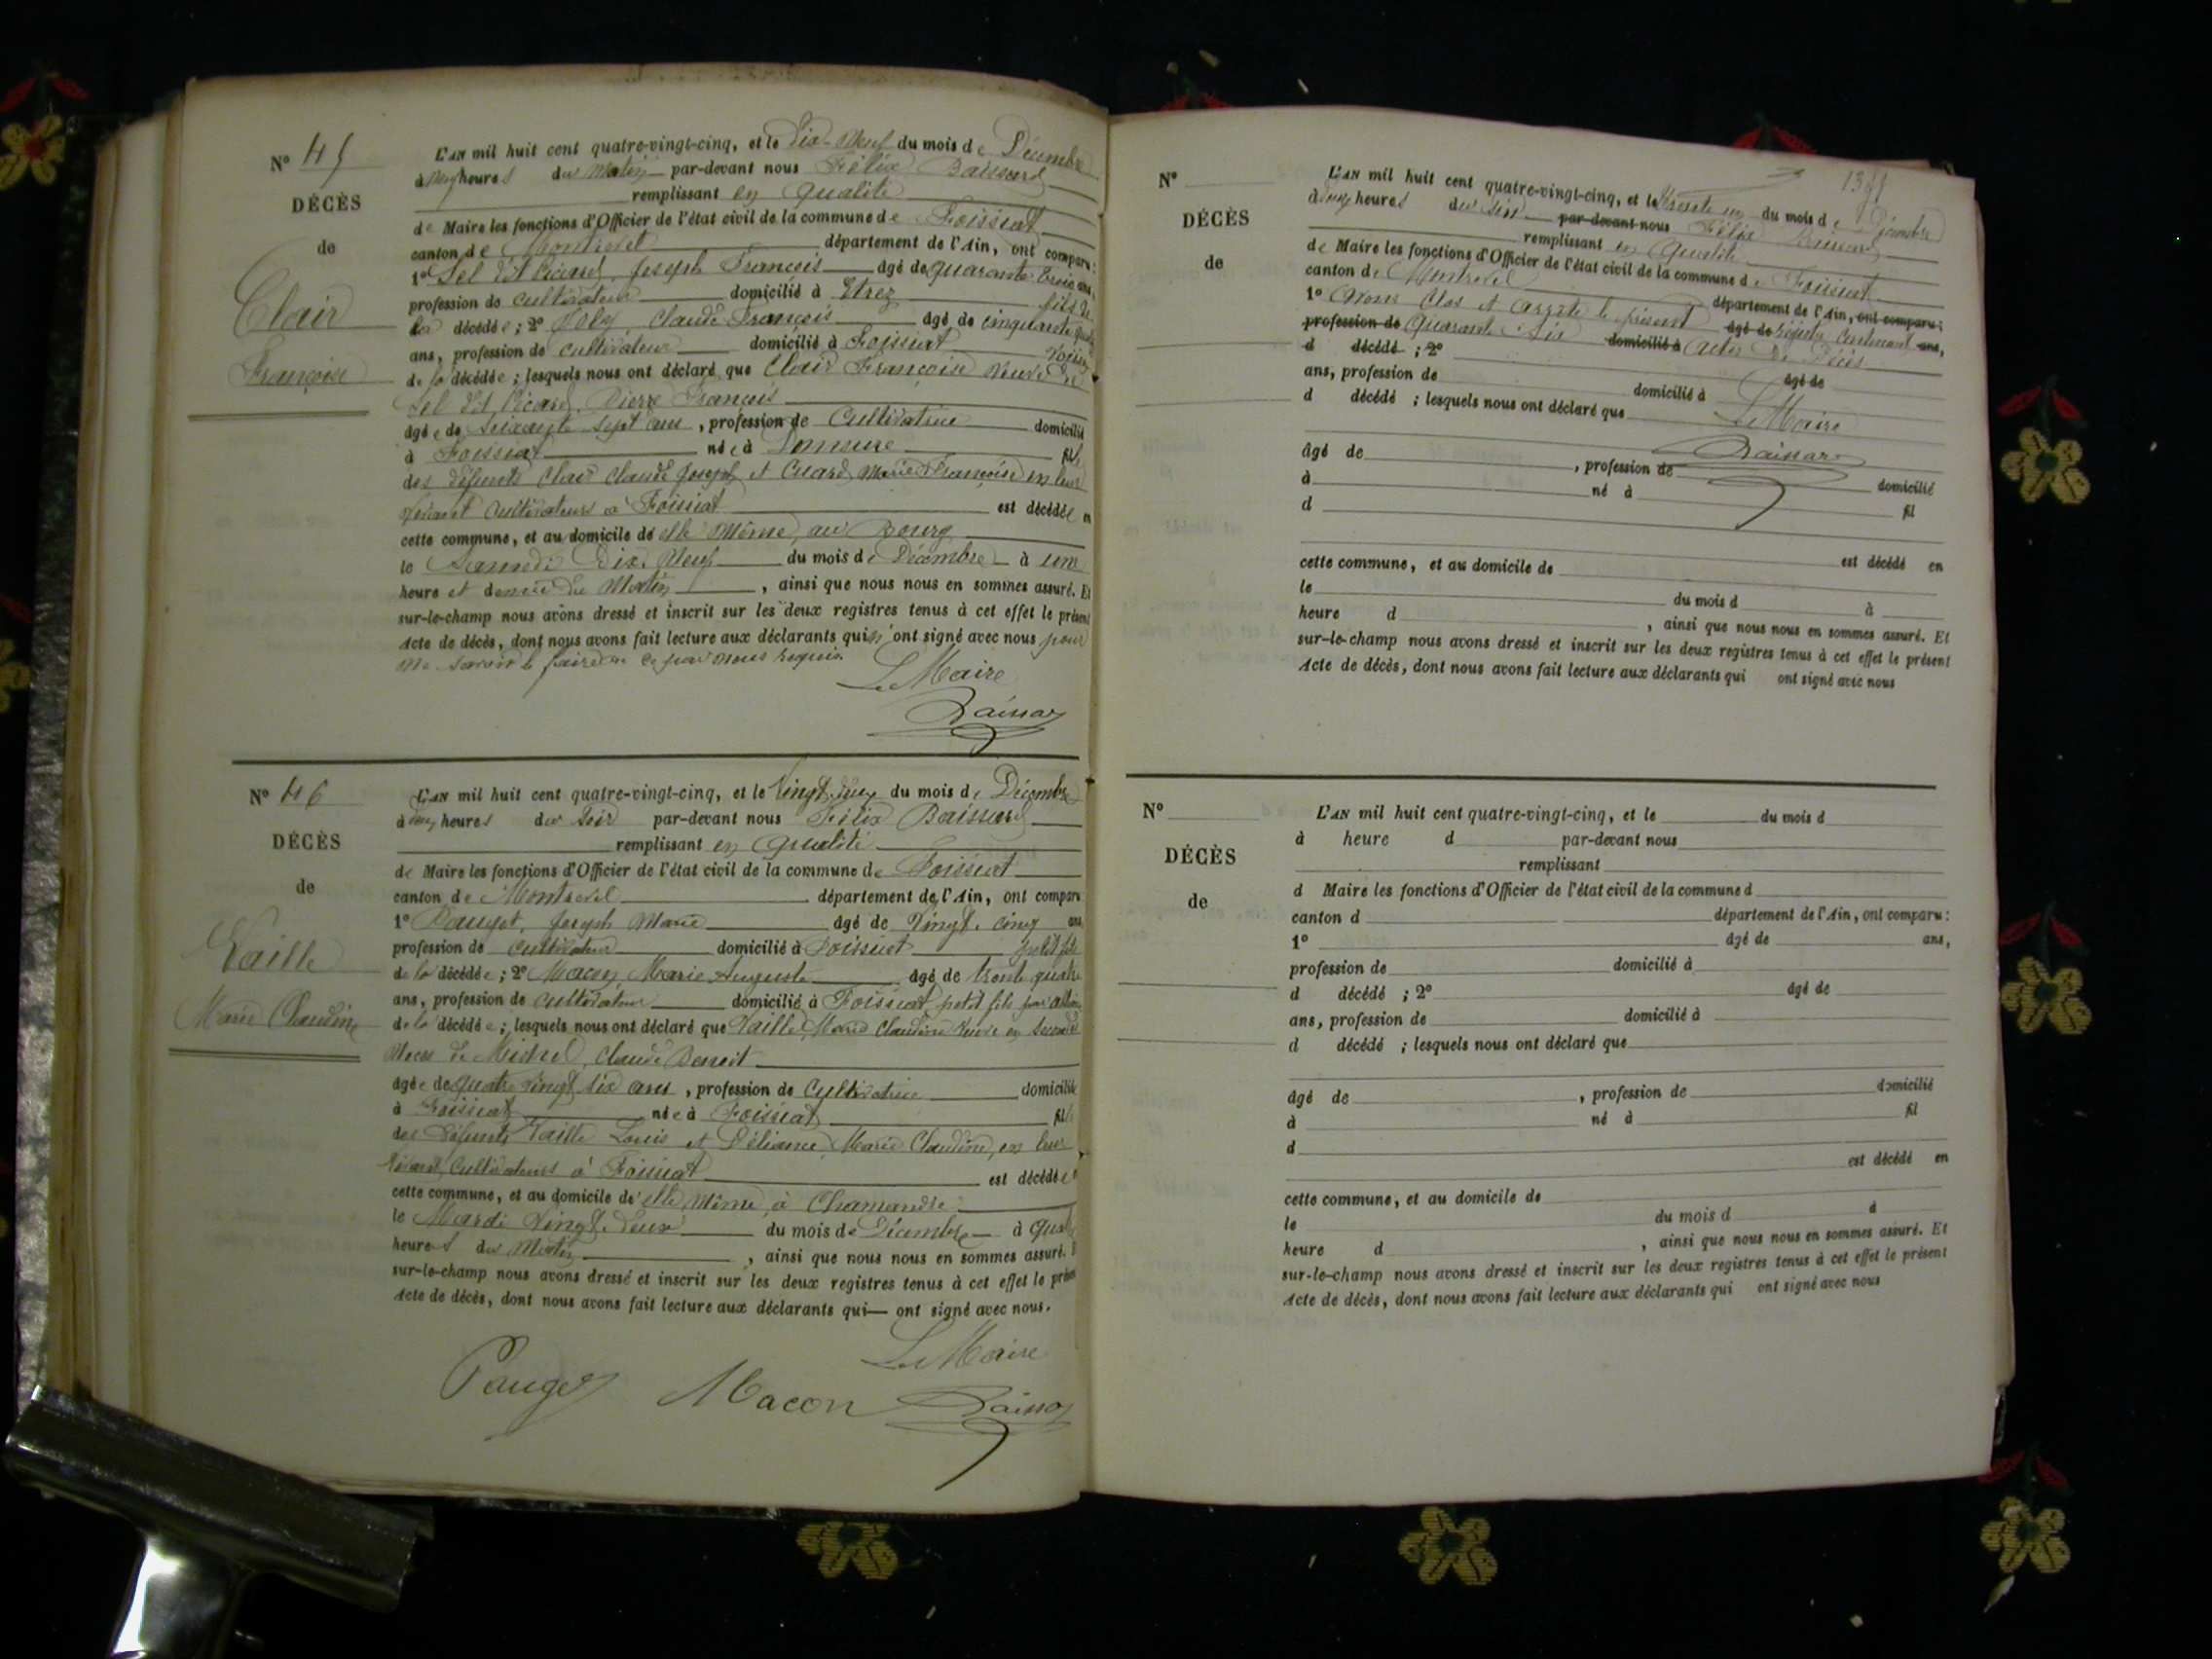 N° 45
DÉCÈS
de
Clair
Françoise
L'AN mil huit cent quatre-vingt-cinq, et le Dix-Neuf du mois de Décembre
à neuf heures du Matin par-devant nous Félix Baissard
remplissant en qualité
de Maire les fonctions d'Officier de l'état civil de la commune de Foissiat
canton de Montrevel département de l'Ain, ont comparu :
1° Joseph François âgé de quarante trois ans,
profession de cultivateur domicilié à Etrez fils de
la décédée ; 2° Joly Claude François âgé de cinquante quatre
ans, profession de cultivateur domicilié à Foissiat voisin
de la décédée ; lesquels nous ont déclaré que Clair Françoise Veuve de
Pierre François
âgée de soixante sept ans, profession de Cultivatrice domicilié
à Foissiat née à fille
des défunts Clair Claude Joseph et Marie Françoise en leur
vivant cultivateurs à Foissiat est décédée en
cette commune, et au domicile de elle même, au Bourg
le Samedi Dix-Neuf du mois de Décembre à une
heure et demie du Matin, ainsi que nous nous en sommes assuré. Et
sur-le-champ nous avons dressé et inscrit sur les deux registres tenus à cet effet le présent
Acte de décès, dont nous avons fait lecture aux déclarants qui n'ont signé avec nous pour
ne savoir le faire de ce par nous requis
Le Maire
Baissard
N° 46
DÉCÈS
de
Vaille
Marie Claudine
L'AN mil huit cent quatre-vingt-cinq, et le Vingt-deux du mois de Décembre
à heures du Soir par-devant nous Félix Baissard
remplissant en qualité
de Maire les fonctions d'Officier de l'état civil de la commune de Foissiat
canton de Montrevel département de l'Ain, ont comparu
1° Pauget, Joseph Marie âgé de Vingt-cinq ans
profession de cultivateur domicilié à Foissiat petit fils
de la décédée ; 2° Macon Marie Auguste âgé de trente quatre
ans, profession de cultivateur domicilié à Foissiat petit fils par alliance
de la décédée ; lesquels nous ont déclaré que Vaille, Marie Claudine Veuve en secondes
Noces de Michel, Claude Benoit
âgée de quatre vingt six ans, profession de Cultivatrice domiciliée
à Foissiat née à Foissiat fille
des défunts Vaille Louis et Marie Claudine, en leur
vivant, Cultivateurs à Foissiat est décédée
cette commune, et au domicile de elle même, à Chamandre
le Mardi Vingt-deux du mois de Décembre à quatre
heures du Matin, ainsi que nous nous en sommes assuré.
sur-le-champ nous avons dressé et inscrit sur les deux registres tenus à cet effet le présent
Acte de décès, dont nous avons fait lecture aux déclarants qui ont signé avec nous.
Le Maire
Pauget Macon Baissard
N°
DÉCÈS
de
L'AN mil huit cent quatre-vingt-cinq, et le trente un du mois de Décembre
à heures du soir par-devant nous Félix Baissard
remplissant en qualité
de Maire les fonctions d'Officier de l'état civil de la commune de Foissiat
canton de Montrevel département de l'Ain, ont comparu :
1° Avons Clos et arrêté le présent âgé de registre contenant ans,
profession de quarante six domicilié à actes de Décès
d décédé ; 2° âgé de
ans, profession de domicilié à
d décédé ; lesquels nous ont déclaré que
Le Maire
Baissard
âgé de , profession de domicilié
à né à fil
d
est décédé en
cette commune, et au domicile de
le du mois d à
heure d , ainsi que nous nous en sommes assuré. Et
sur-le-champ nous avons dressé et inscrit sur les deux registres tenus à cet effet le présent
Acte de décès, dont nous avons fait lecture aux déclarants qui ont signé avec nous
N°
DÉCÈS
de
L'AN mil huit cent quatre-vingt-cinq, et le du mois d
à heure d par-devant nous
remplissant
d Maire les fonctions d'Officier de l'état civil de la commune d
canton d département de l'Ain, ont comparu :
1° âgé de ans,
profession de domicilié à
d décédé ; 2° âgé de
ans, profession de domicilié à
d décédé ; lesquels nous ont déclaré que
âgé de , profession de domicilié
à né à fil
d
est décédé en
cette commune, et au domicile de
le du mois d d
heure d , ainsi que nous nous en sommes assuré. Et
sur-le-champ nous avons dressé et inscrit sur les deux registres tenus à cet effet le présent
Acte de décès, dont nous avons fait lecture aux déclarants qui ont signé avec nous